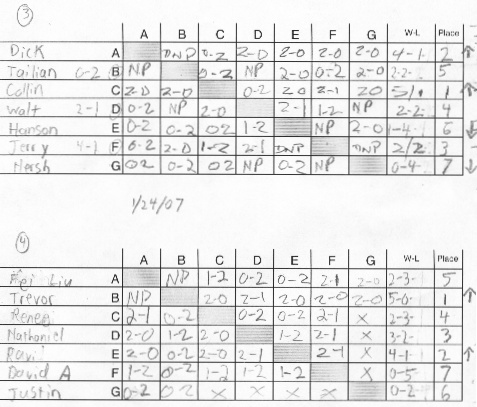 3
A B C D E F G W-L Place
Dick A DNP 0-2 2-0 2-0 2-0 2-0 4-1 2 ↑
Jailian 0-2 B NP 0-2 NP 2-0 0-2 2-0 2-2 5
Collin C 2-0 2-0 0-2 20 2-1 20 5/1 1 ↑
Walt 2-1 D 0-2 NP 2-0 2-1 1-2 NP 2-2 4
Hanson E 0-2 0-2 02 1-2 NP 2-0 1-4 6 ↓
Jerry 4-1 F 0-2 2-0 1-2 2-1 DNP DNP 2/2 3
Hersh G 02 0-2 02 NP 0-2 NP 0-4 7 ↓
1/24/07
4
A B C D E F G W-L Place
Fei Liu A NP 1-2 0-2 0-2 2-1 2-0 2-3 5
Trevor B NP 2-0 2-1 2-0 2-0 2-0 5-0 1 ↑
Renee C 2-1 0-2 0-2 0-2 2-1 X 2-3 4
Nathaniel D 2-0 1-2 2-0 1-2 2-1 X 3-2 3
Ravi E 2-0 0-2 2-0 2-1 2-1 X 4-1 2 ↑
David A F 1-2 0-2 1-2 1-2 1-2 X 0-5 7
Justin G 0-2 0-2 X X X X 0-2 6